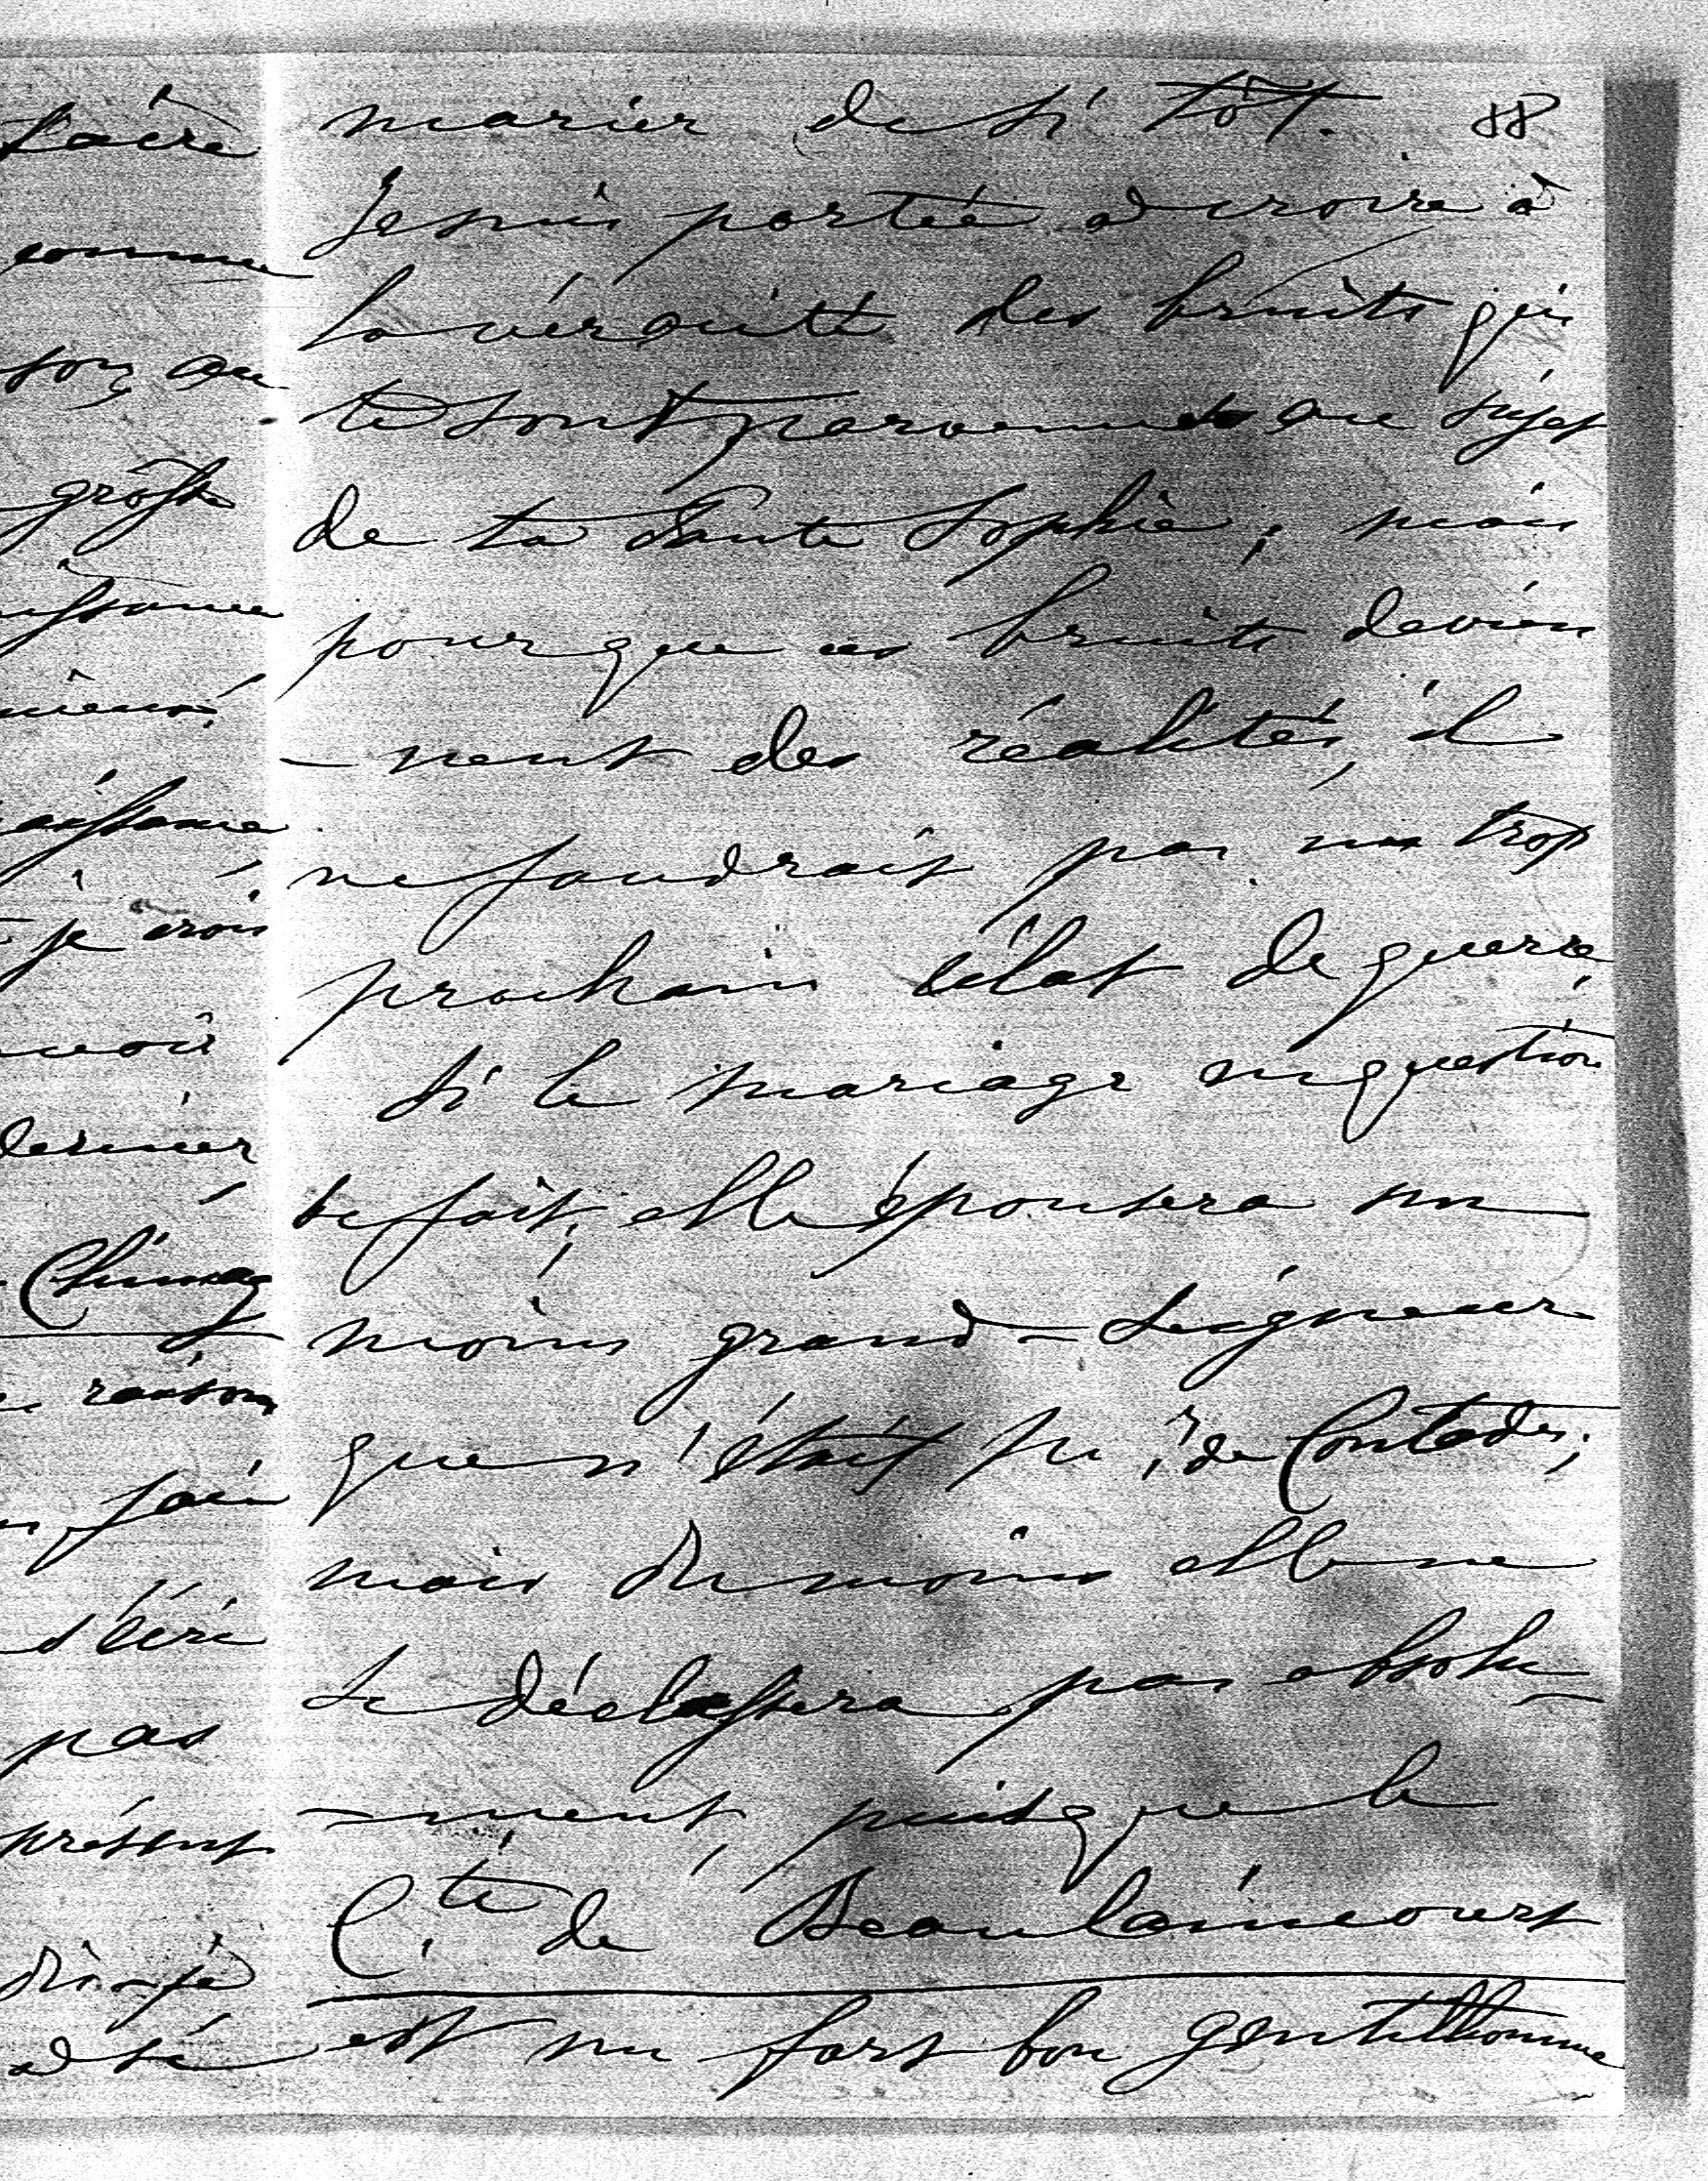 88
marier de si tôt.
Je suis portée à croire à
la véracité des bruits qui
te sont parvenus au sujet
de ta Tante Sophie; mais
pour que ces bruits devien
- nent des réalités, il
ne faudrait pas un trop
prochain éclat de guerre
Si le mariage en question
se fait, elle épousera un
moins grand-Seigneur
que n'était Mr de Contades;
mais du moins elle ne
se déclassera pas absolu-
- ment, puisque le
Cte de Beaulaincourt
est un fort bon gentilhomme
comme
grosse
je crois
dernier
Chimay
raison
pas
présent